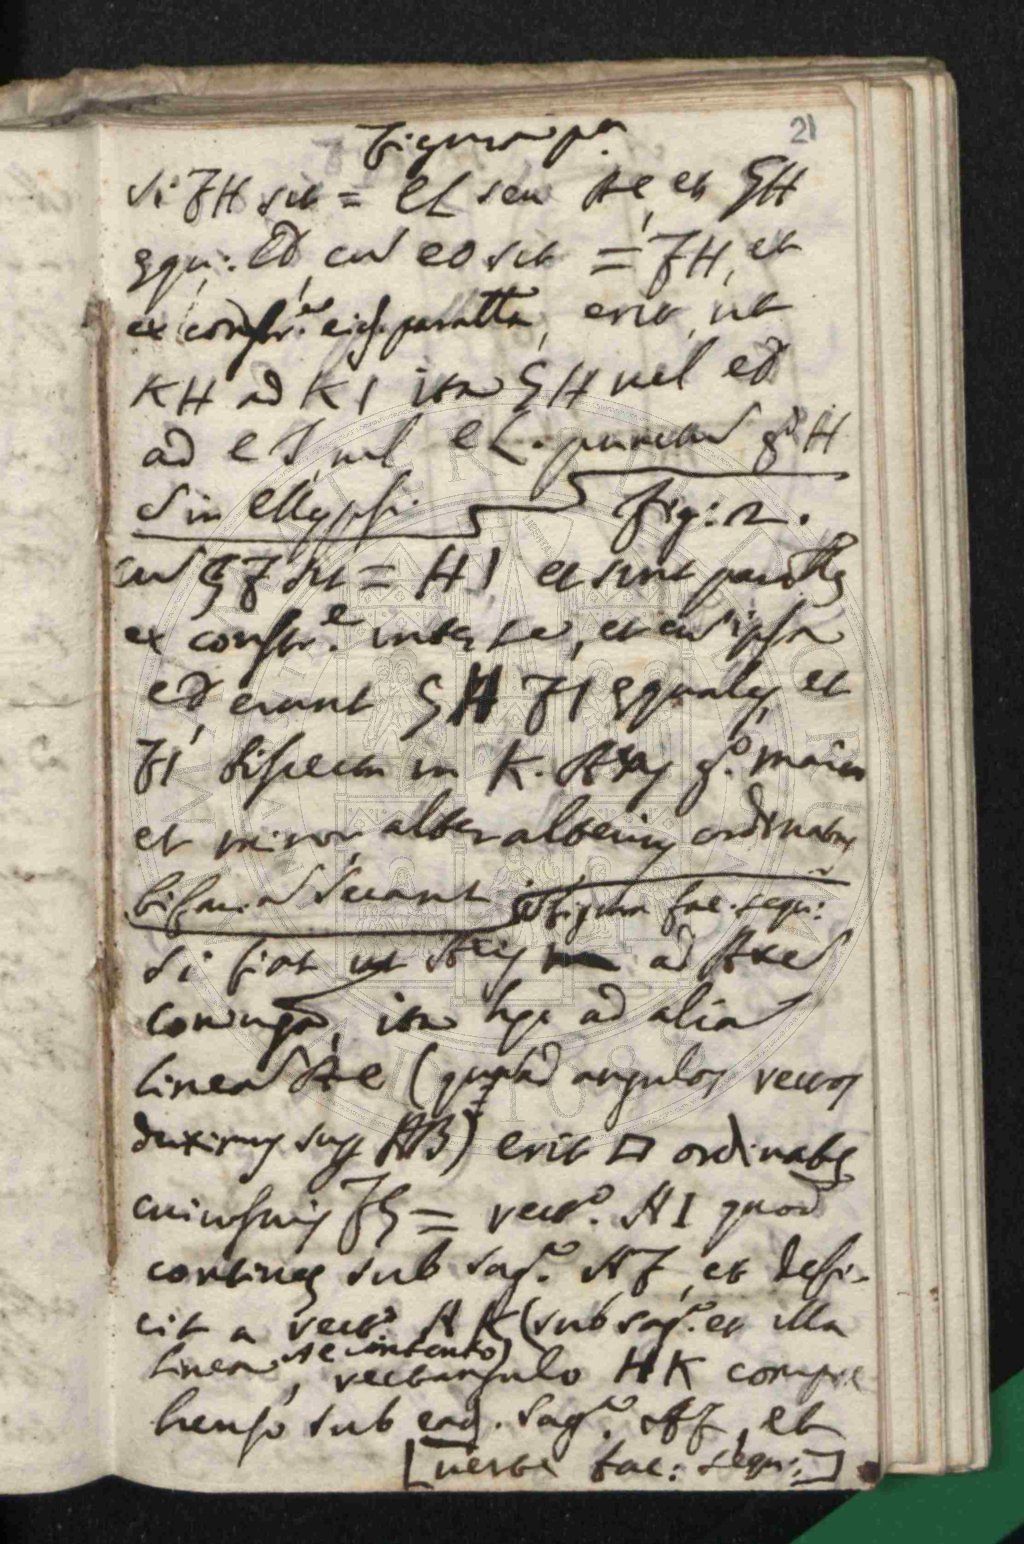 21
Figura pa.
Si FH sit = EL seu AE, et GH
ęqu: ED, cum ED sit = FH, et
ex constr.e eius paralla, erit, ut
KH ad KI ita GH vel ED
ad EI, vel EL. punctum go H
Sin ellypsi. Fig: 2.
cum GF sit = HI et sint parallę
ex constr.e inter se, et cum ipsa
ED, erunt GH FI ęquales, et
FI bisecta in K. Axes go. maior
et minor, alter alterius ordinatas
bifariam secant Figura fac. sequ:
Si fiat ut Axis ad Axem
coniugm, ita hic ad aliam
lineam AE (quam ad angulos rectos
duximus sup AB) erit □ ordinatę
cuiusuis FG = recto. AI quod
continet sub sago. AF, et defi-
cit a recto AK (sub sago. et illa
linea AE contento) rectangulo HK compre
henso sub ead. sago. AF, et
[verte fac: sequ:]